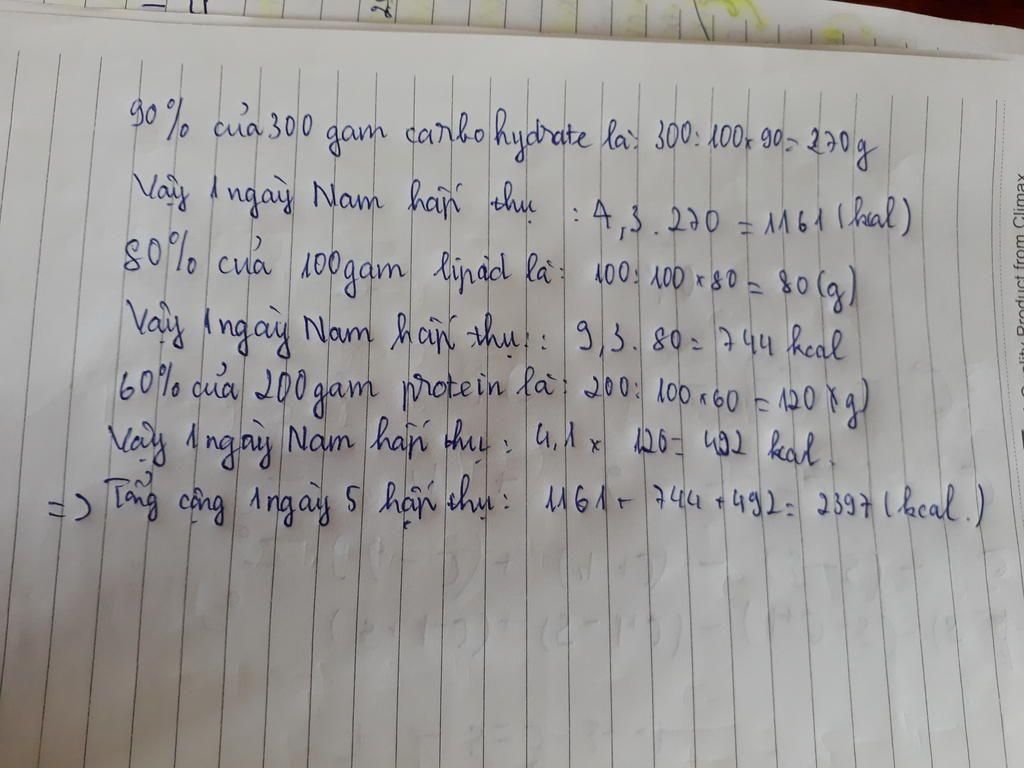 90% của 300 gam carbohydrate là: 300:100×90=270g
Vậy 1 ngày Nam hấp thụ : 4,3.270=1161 (kcal)
80% của 100gam lipid là: 100:100×80=80(g)
Vậy 1 ngày Nam hấp thụ: 9,3.80=744 kcal
60% của 200gam protein là: 200:100×60=120(g)
Vậy 1 ngày Nam hấp thụ: 4,1×120=492 kcal.
=> Tổng cộng 1 ngày 5 hấp thụ: 1161+744+492=2397 (kcal.)
Product from Climax